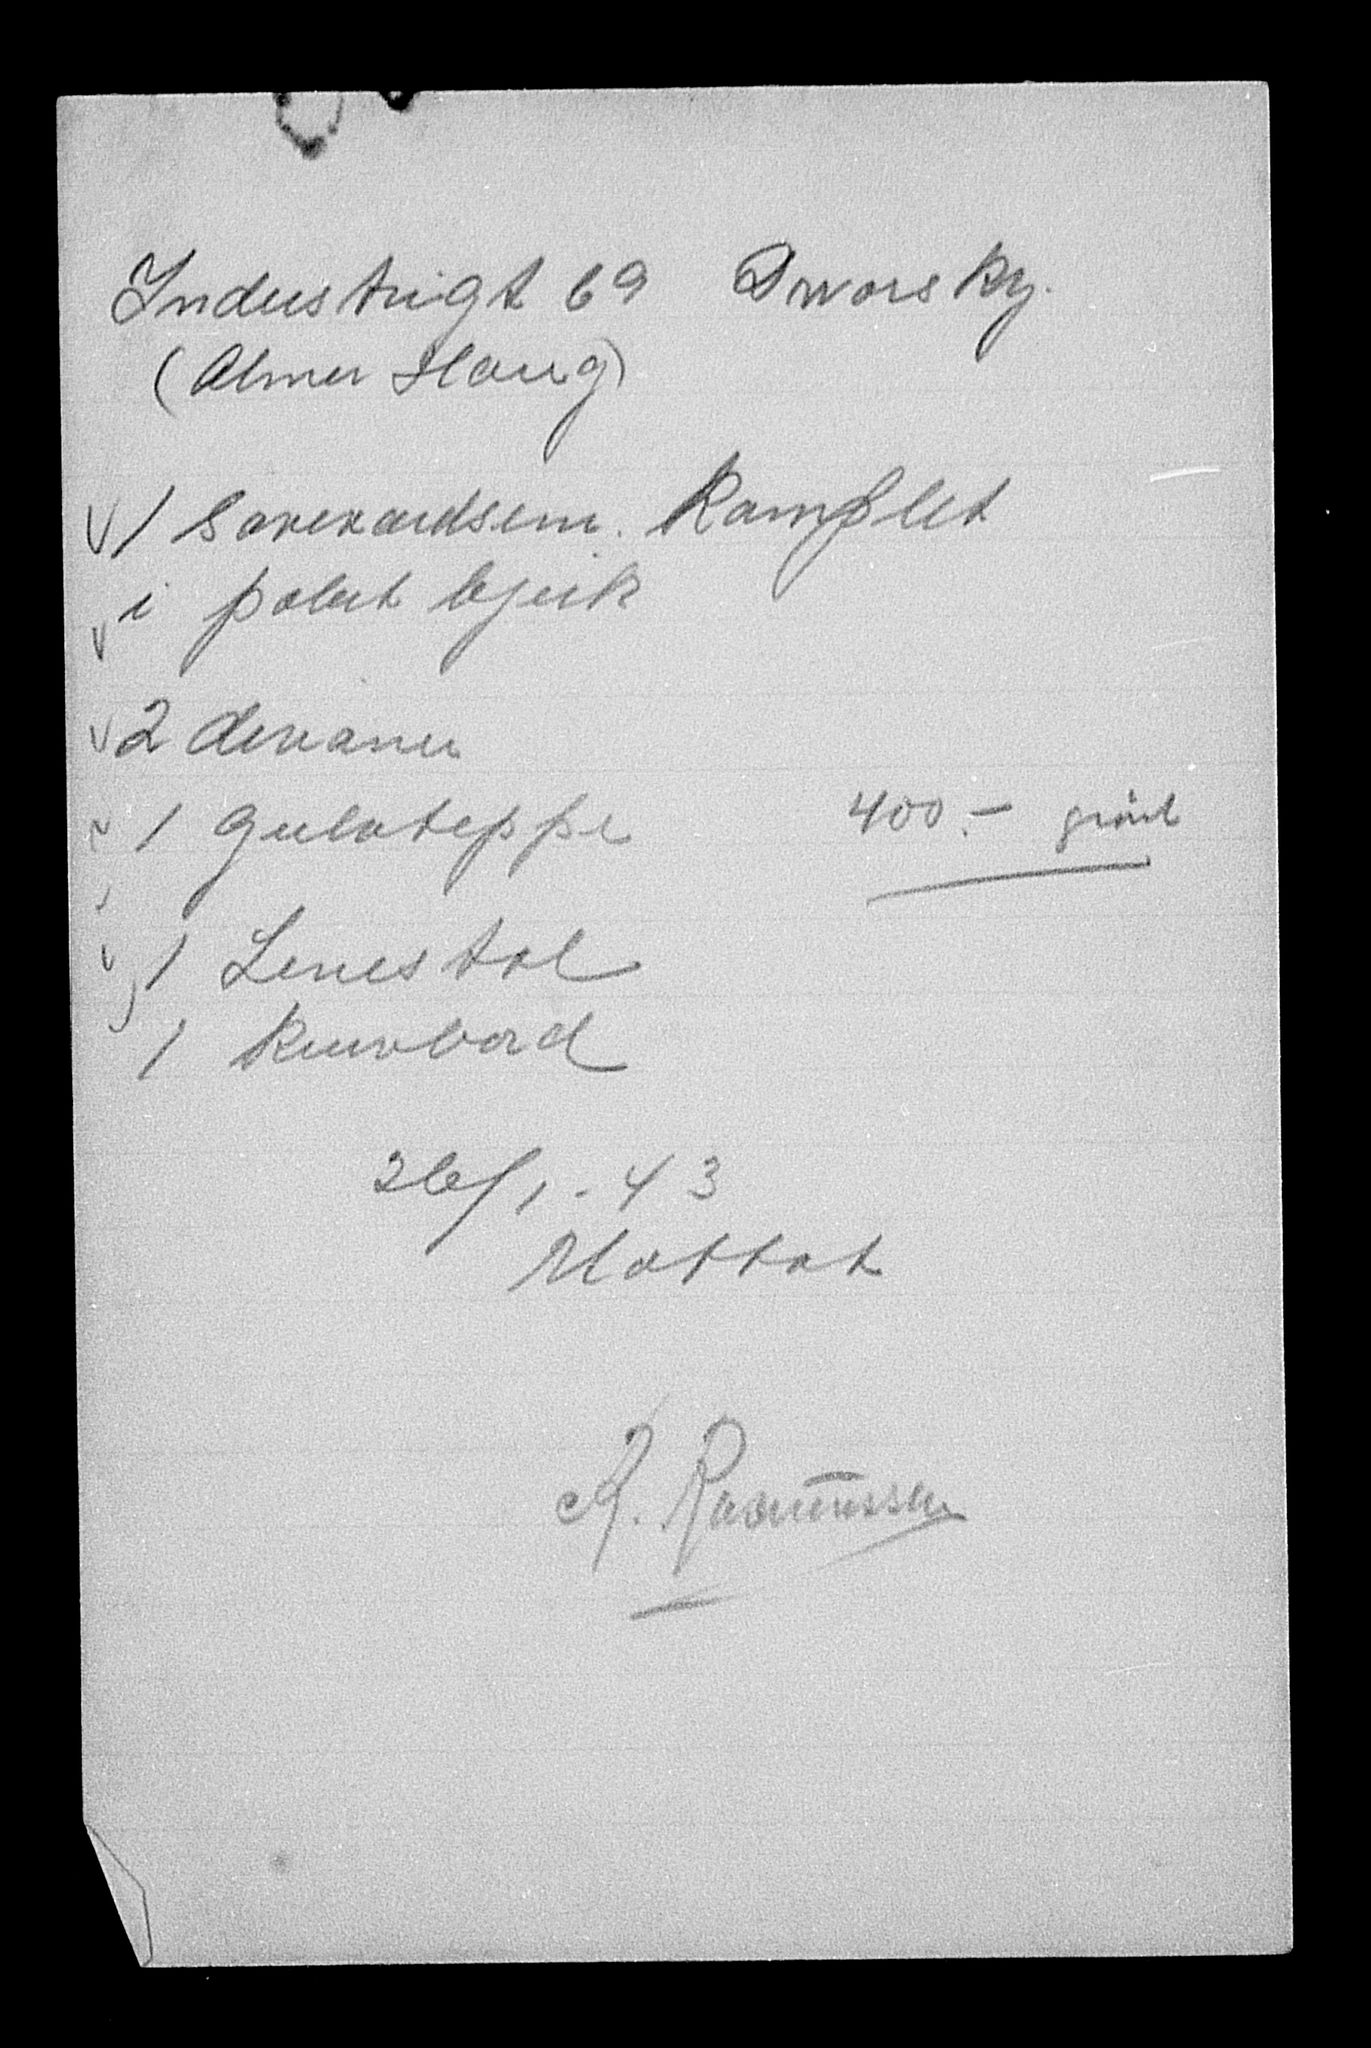 Industrigt 69 Dworsky.
(Almer Haug)
1 Soverærelsem. Komplet
i polert bjerk
2 divaner
1 Gulvteppe 400.-
1 Lenestol
1 Kurvbord
26/1-43
Mottat
A. Rasmussen